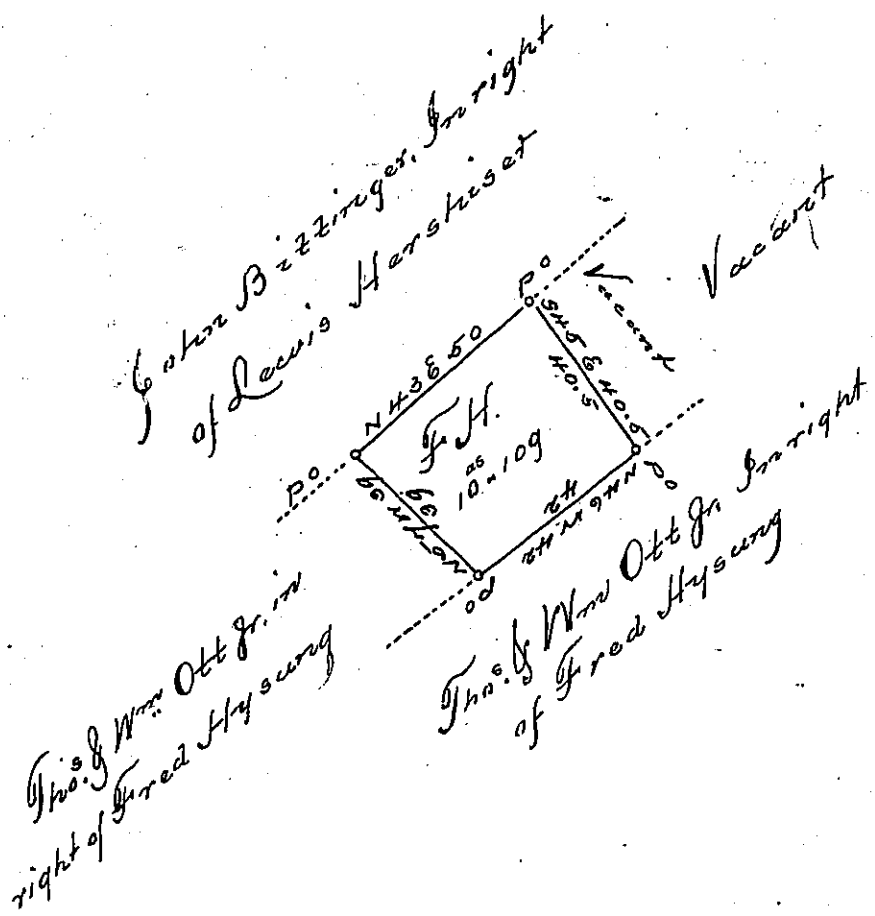 John Bitzinger, In right
of Lewis Hershiser
Vacant
Vacant
Po
N 43 E 50
S 45 E 40.5
40.5
F. H.
as
10 .. 109
Po
39
42
Po
Po
Thos. & Wm Ott Jr. in
right of Fred Hysung
Thos. & Wm Ott Jr. In right
of Fred Hysung